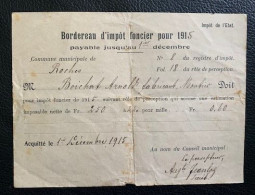 Impôt de l'Etat.
Bordereau d'impôt foncier pour 1915
payable jusqu'au 1er décembre
Commune municipale de N° 8 du registre d'impôt
Roches Fol. 12 du rôle de perception
M. Borchat Arnold Doit
pour impôt foncier de 1915, suivant rôle de perception qui accuse une estimation
imposable nette de Fr. 250 pour mille Fr. 0.80
Acquitté le 1er Décembre 1915
Au nom du Conseil municipal
Le percepteur,